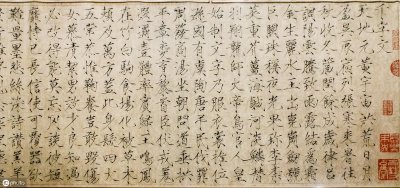 千字文
天地元黃宇宙洪荒日月
盈昃辰宿列張寒來暑往
秋收冬藏閏餘成歲律呂
調陽雲騰致雨露結為霜
金生麗水玉出崑岡劍號
巨闕珠稱夜光果珍李柰
菜重芥薑海鹹河淡鱗潛
羽翔龍師火帝鳥官人皇
始制文字乃服衣裳推位
遜國有虞陶唐弔民伐罪
周發商湯坐朝問道垂拱
平章愛育黎首臣伏戎羌
遐邇壹體率賓歸王鳴鳳
在竹白駒食場化被草木
賴及萬方蓋此身髮四大
五常恭惟鞠養豈敢毀傷
女慕貞潔男效才良知過
必改得能莫忘罔談彼短
靡恃己長信使可覆器欲
難量墨悲絲染詩讚羔羊